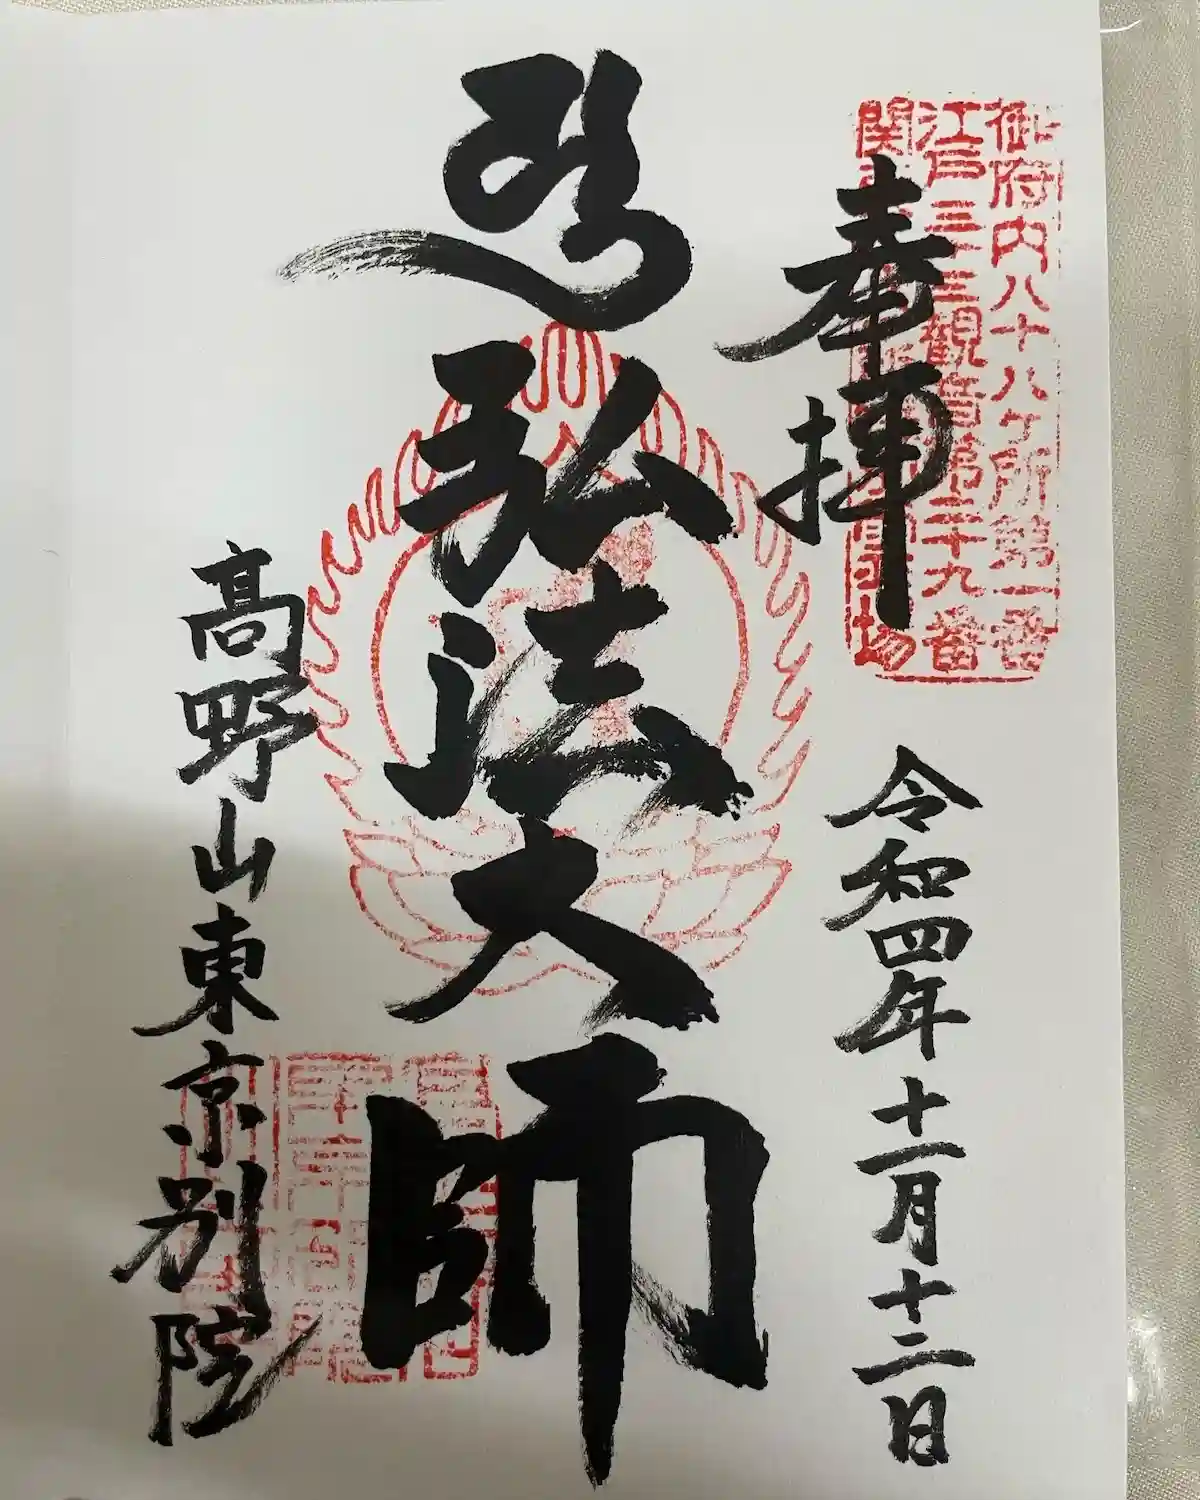 御府内八十八ヶ所第一番
江戸三十三観音第二十九番
奉拝
令和四年十一月十二日
弘法大師
高野山東京別院